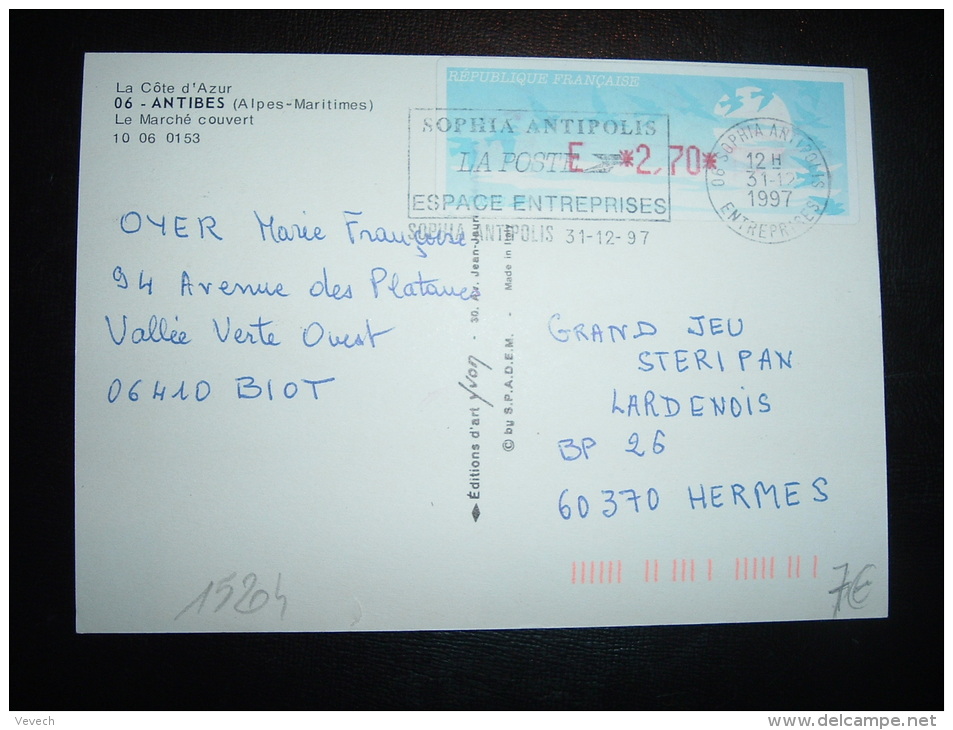 La Côte d'Azur
06 - ANTIBES (Alpes-Maritimes)
Le Marché couvert
10 06 0153
RÉPUBLIQUE FRANÇAISE
SOPHIA ANTIPOLIS
LA POSTE
ESPACE ENTREPRISES
SOPHIA ANTIPOLIS 31-12-97
E *2,70*
06 SOPHIA ANTIPOLIS
12 H
31-12
1997
ENTREPRISES
OYER Marie Françoise
94 Avenue des Platanes
Vallée Verte Ouest
06410 BIOT
Éditions d'art Yvon - 30, Av. Jean-Jaurè
© by S.P.A.D.E.M. - Made in Italy
GRAND JEU
STERIPAN
LARDENOIS
BP 26
60370 HERMES
15204
7€
Vevech
www.delcampe.net